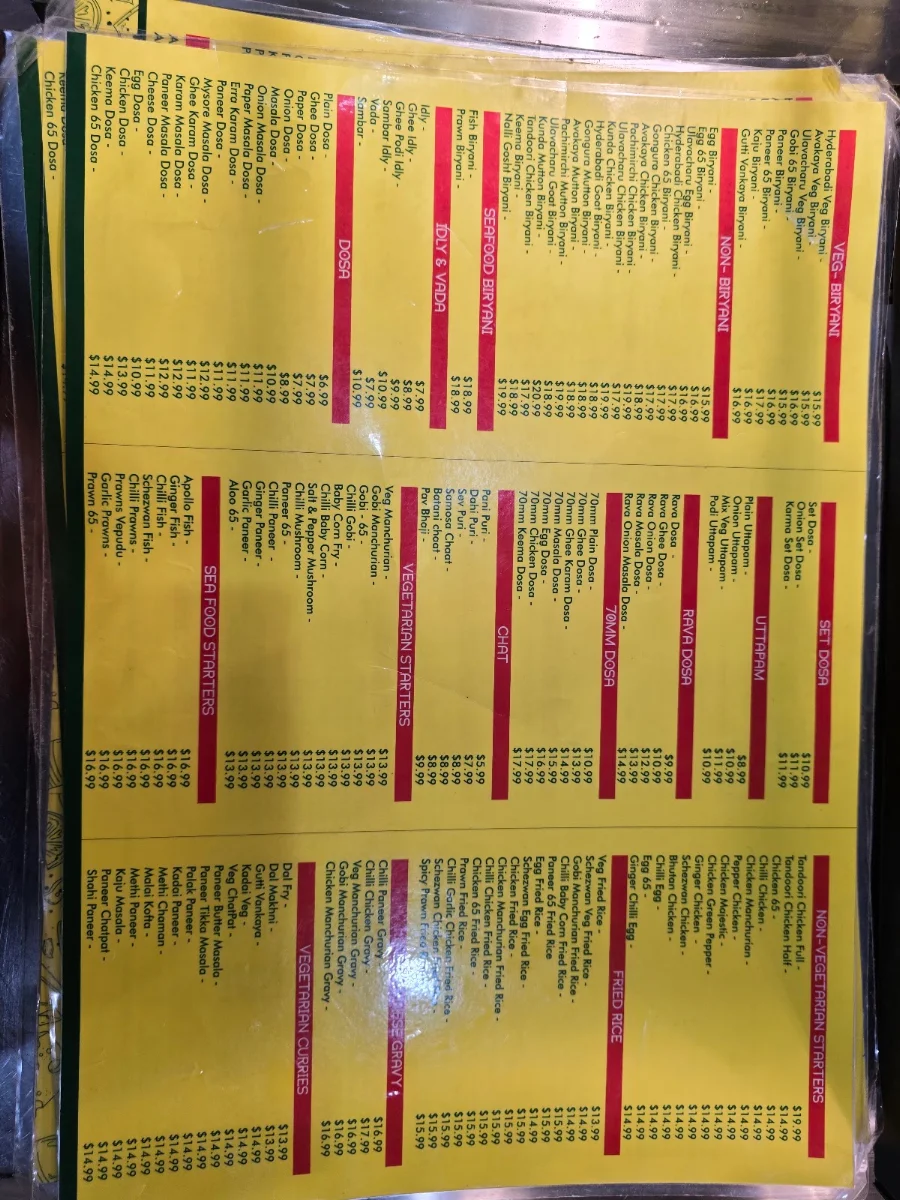 VEG- BIRYANI
Hyderabadi Veg Biryani - $15.99
Avakaya Veg Biryani - $15.99
Ulavacharu Veg Biryani - $16.99
Gobi 65 Biryani - $15.99
Paneer Biryani - $16.99
Paneer 65 Biryani - $17.99
Kaju Biryani - $16.99
Gutti Vankaya Biryani - $16.99
NON- BIRYANI
Egg Biryani - $15.99
Egg 65 Biryani - $16.99
Ulavacharu Egg Biryani - $16.99
Hyderabadi Chicken Biryani - $17.99
Chicken 65 Biryani - $17.99
Gongura Chicken Biryani - $17.99
Avakaya Chicken Biryani - $18.99
Pachimirchi Chicken Biryani - $19.99
Ulavacharu Chicken Biryani - $17.99
Kunda Chicken Biryani - $19.99
Hyderabadi Goat Biryani - $18.99
Gongura Mutton Biryani - $18.99
Avakaya Mutton Biryani - $18.99
Pachimirchi Mutton Biryani - $19.99
Ulavacharu Goat Biryani - $18.99
Kunda Mutton Biryani - $20.99
Tandoori Chicken Biryani - $17.99
Keema Biryani - $18.99
Nalli Gosht Biryani - $19.99
SEAFOOD BIRYANI
Fish Biryani - $18.99
Prawn Biryani - $18.99
IDLY & VADA
Idly - $7.99
Ghee Idly - $8.99
Ghee Podi Idly- $9.99
Sambar Idly - $10.99
Vada - $7.99
Sambar - $10.99
DOSA
Plain Dosa - $6.99
Ghee Dosa - $7.99
Paper Dosa - $7.99
Onion Dosa - $8.99
Masala Dosa - $10.99
Onion Masala Dosa - $11.99
Paper Masala Dosa - $11.99
Erra Karam Dosa - $11.99
Paneer Dosa - $11.99
Mysore Masala Dosa - $12.99
Ghee Karam Dosa - $11.99
Karam Masala Dosa - $12.99
Paneer Masala Dosa - $12.99
Cheese Dosa - $11.99
Egg Dosa - $10.99
Chicken Dosa - $13.99
Keema Dosa - $14.99
Chicken 65 Dosa - $14.99
SET DOSA
Set Dosa - $10.99
Onion Set Dosa - $11.99
Karma Set Dosa - $11.99
UTTAPAM
Plain Uttapam - $8.99
Onion Uttapam - $10.99
Mix Veg Uttapam - $11.99
Podi Uttapam - $10.99
RAVA DOSA
Rava Dosa - $9.99
Rava Ghee Dosa - $10.99
Rava Onion Dosa - $12.99
Rava Masala Dosa - $13.99
Rava Onion Masala Dosa - $14.99
70MM DOSA
70mm Plain Dosa - $10.99
70mm Ghee Dosa - $13.99
70mm Ghee Karam Dosa - $14.99
70mm Masala Dosa - $15.99
70mm Egg Dosa - $16.99
70mm Chicken Dosa - $17.99
70mm Keema Dosa - $17.99
CHAT
Pani Puri - $5.99
Dahi Puri - $7.99
Sev Puri - $8.99
Samosa Chaat - $8.99
Batani chaat - $8.99
Pav Bhaji - $9.99
VEGETARIAN STARTERS
Veg Manchurian - $13.99
Gobi Manchurian - $13.99
Gobi - 65 - $13.99
Chilli Gobi - $13.99
Baby Corn Fry - $13.99
Chilli Baby Corn - $13.99
Salt & Pepper Mushroom - $13.99
Chilli Mushroom - $13.99
Paneer 65 - $13.99
Chilli Paneer - $13.99
Ginger Paneer - $13.99
Garlic Paneer - $13.99
Aloo 65 - $13.99
SEA FOOD STARTERS
Apollo Fish - $16.99
Ginger Fish - $16.99
Chilli Fish - $16.99
Schezwan Fish - $16.99
Chilli Prawns - $16.99
Prawns Vepudu - $16.99
Garlic Prawns - $16.99
Prawn 65 - $16.99
NON-VEGETARIAN STARTERS
Tandoori Chicken Full - $19.99
Tandoori Chicken Half - $14.99
Chicken 65 - $14.99
Chilli Chicken - $14.99
Chicken Manchurian - $14.99
Pepper Chicken - $14.99
Chicken Majestic - $14.99
Chicken Green Pepper - $14.99
Ginger Chicken - $14.99
Schezwan Chicken - $14.99
Bhutan Chicken - $14.99
Chilli Egg - $14.99
Egg 65 - $14.99
Ginger Chilli Egg - $14.99
FRIED RICE
Veg Fried Rice - $13.99
Schezwan Veg Fried Rice - $14.99
Gobi Manchurian Fried Rice - $14.99
Chilli Baby Corn Fried Rice - $15.99
Paneer 65 Fried Rice $15.99
Egg Fried Rice - $14.99
Schezwan Egg Fried Rice - $15.99
Chicken Fried Rice - $15.99
Chicken Manchurian Fried Rice - $15.99
Chilli Chicken Fried Rice - $15.99
Chicken 65 Fried Rice - $15.99
Prawn Fried Rice - $15.99
Chilli Garlic Chicken Fried Rice - $15.99
Schezwan Chicken Fried Rice - $15.99
Spicy Prawn $15.99
GRAVY
Chilli Paneer Gravy $16.99
Chilli Chicken Gravy - $17.99
Veg Manchurian Gravy - $16.99
Gobi Manchurian Gravy - $16.99
Chicken Manchurian Gravy - $16.99
VEGETARIAN CURRIES
Dal Fry - $13.99
Dal Makhni - $13.99
Gutti Vankaya - $14.99
Kadai Veg - $14.99
Veg ChatPat - $14.99
Paneer Butter Masala - $14.99
Paneer Tikka Masala - $14.99
Palak Paneer - $14.99
Kadai Paneer - $14.99
Methi Chaman - $14.99
Malai Kofta - $14.99
Methi Paneer - $14.99
Kaju Masala - $14.99
Paneer Chatpat - $14.99
Shahi Paneer - $14.99
Keema Dosa -
Chicken 65 Dosa -